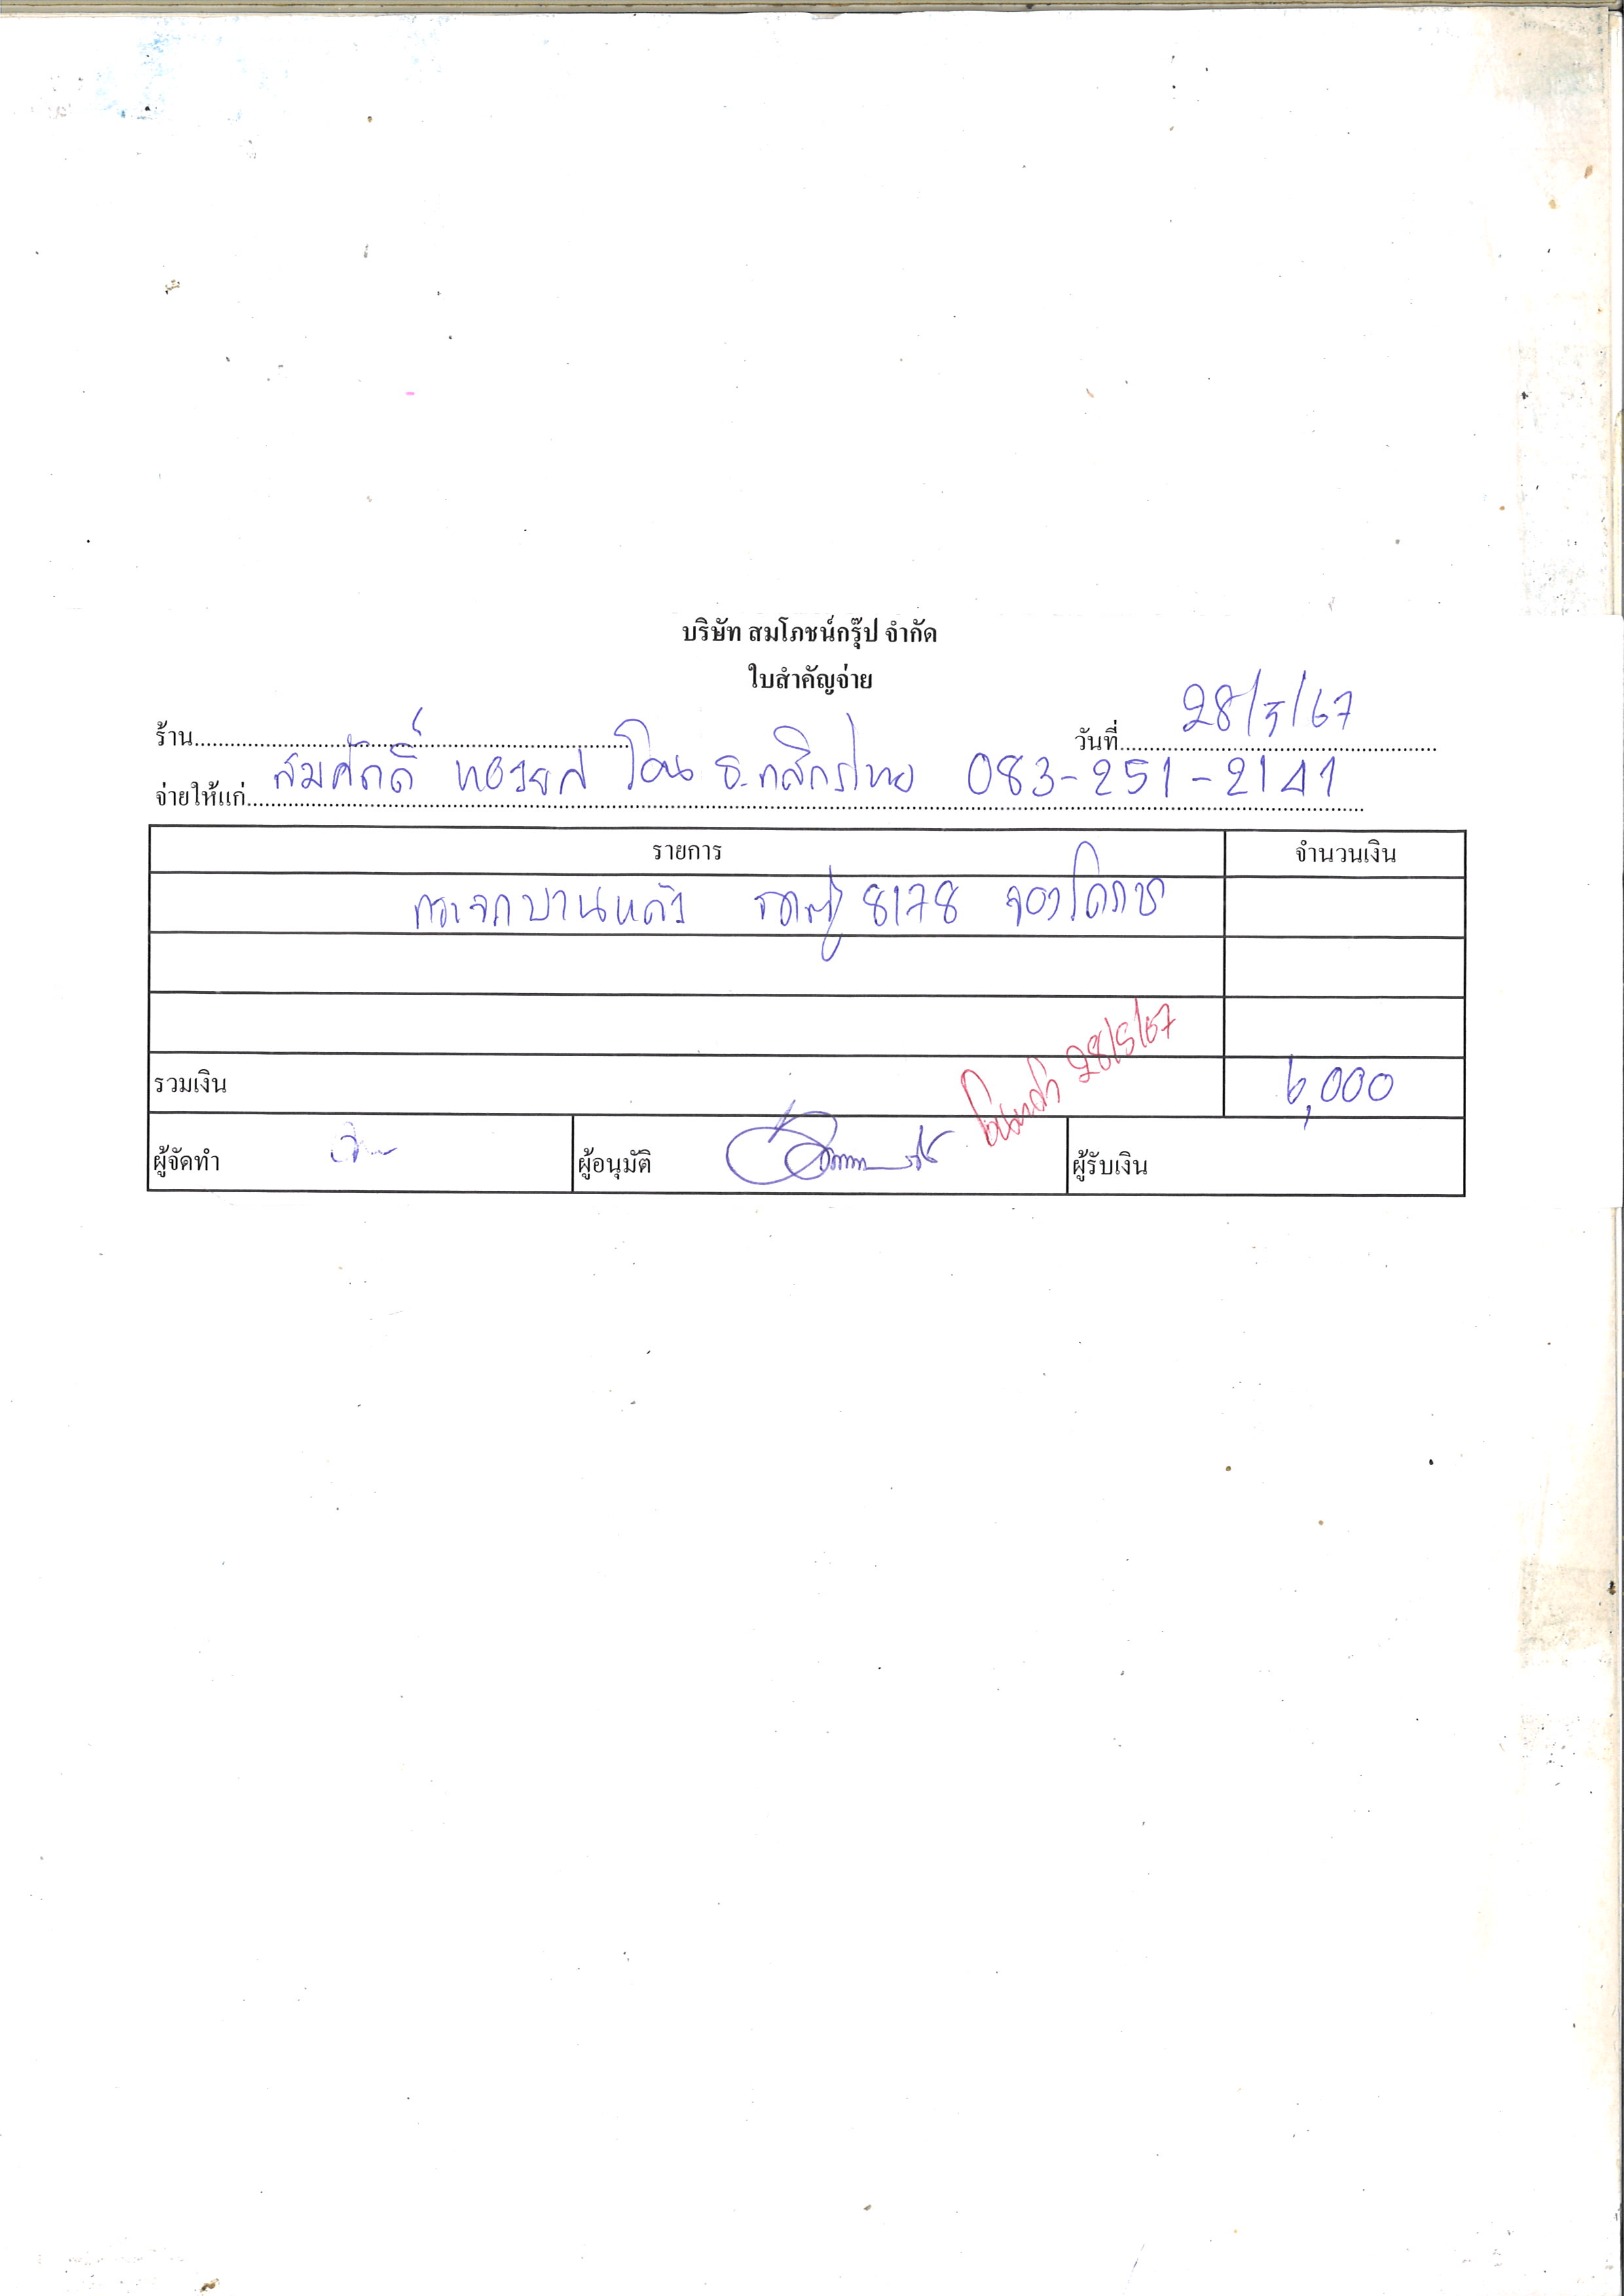 บริษัท สมโภชน์กรุ๊ป จำกัด
ใบสำคัญจ่าย
ร้าน
วันที่ 28/5/67
จ่ายให้แก่ สมศักดิ์ ทองยศ โอน ธ.กสิกรไทย 083-251-2141
รายการ จำนวนเงิน
กระจกบานหลัง รถตู้ 8178
โอนแล้ว 28/5/67
รวมเงิน 6,000
ผู้จัดทำ ผู้อนุมัติ ผู้รับเงิน